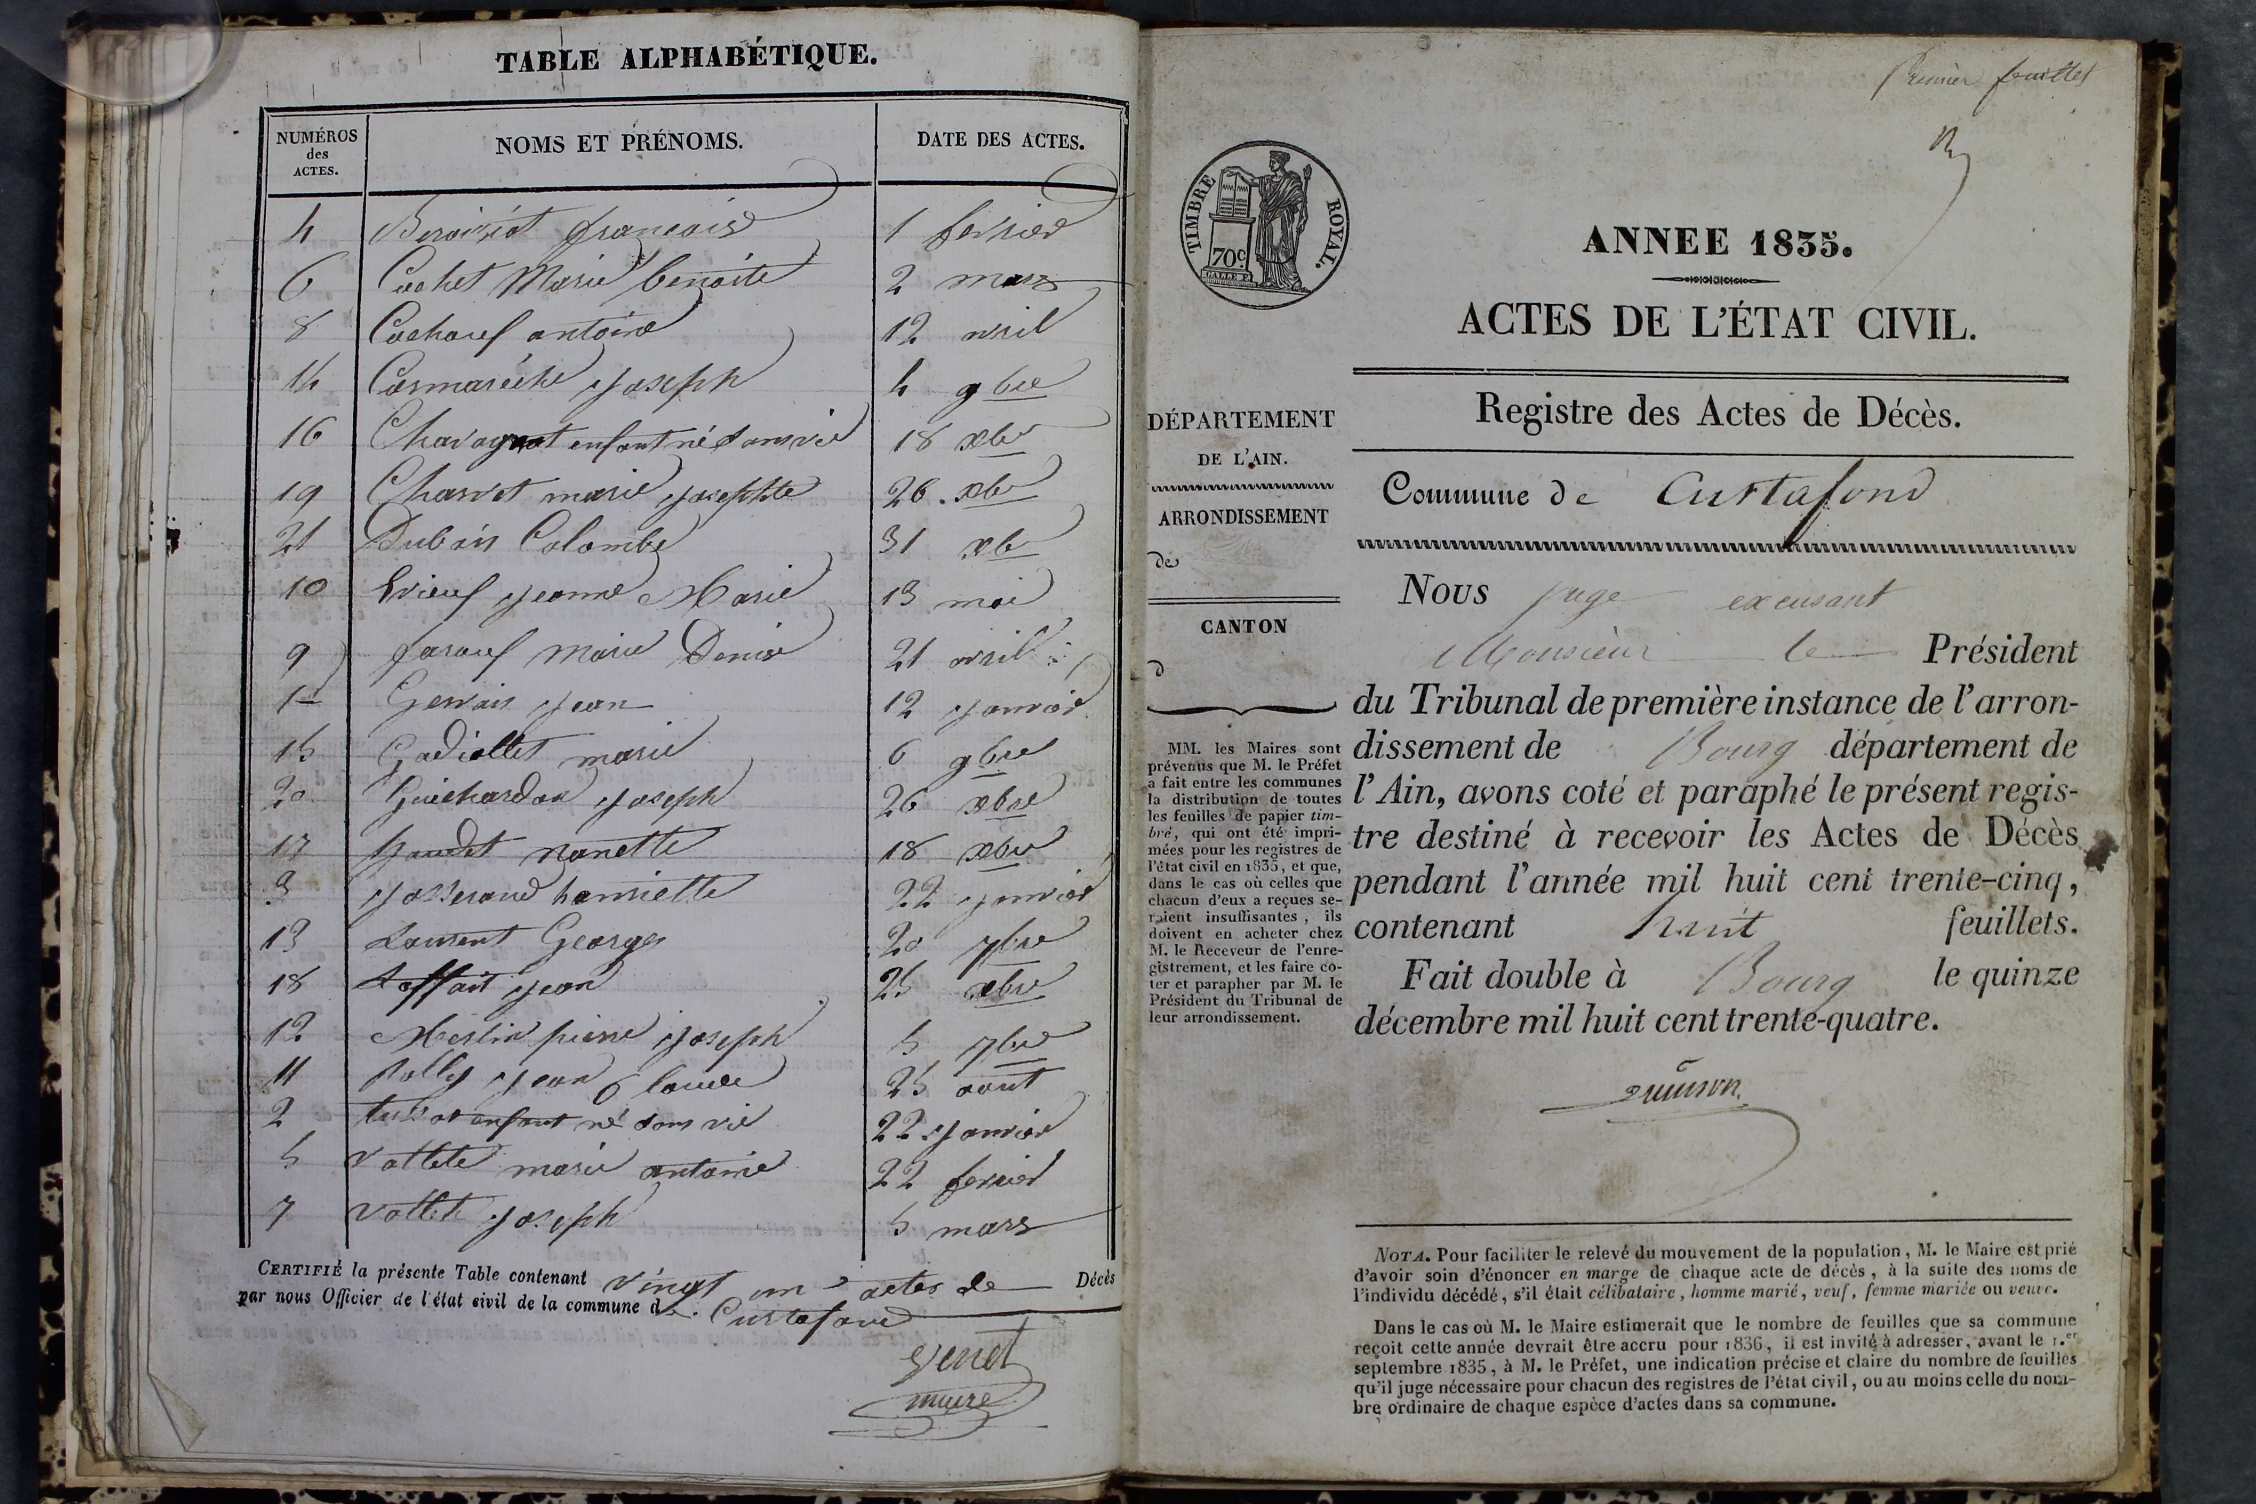 TABLE ALPHABÉTIQUE.
NUMÉROS des ACTES. NOMS ET PRÉNOMS. DATE DES ACTES.
4 françois 1 fevrier
6 Cochet Marie benoite 2 mars
8 antoine 12 avril
14 Cormarèche joseph 4 9bre
16 Chavagnat enfant né sans vie 18 xbre
19 Charvet marie josephte 26 xbre
21 Dubois Colombe 31 xbre
10 jeanne Marie 13 mai
9 marie Denise 21 avril
1er Gervais jean 12 janvier
15 Gadiollet marie 6 9bre
20 Guichardon joseph 26 xbre
17 nanette 18 xbre
3 josserand henriette 22 janvier
13 Laurent Georges 20 7bre
18 jean 25 xbre
12 Merlin pierre joseph 5 7bre
11 jean 25 aout
2 enfant né sans vie 22 janvier
5 marie antoine 22 fevrier
7 joseph 5 mars
CERTIFIÉ la présente Table contenant vingt un actes de Décès
par nous Officier de l'état civil de la commune d Curtafond
Venet
maire
Premier feuillet
TIMBRE ROYAL.
70c.
ANNEE 1835.
ACTES DE L'ÉTAT CIVIL.
Registre des Actes de Décès.
DÉPARTEMENT
DE L'AIN.
ARRONDISSEMENT
de
CANTON
d
MM. les Maires sont
prévenus que M. le Préfet
a fait entre les communes
la distribution de toutes
les feuilles de papier tim-
bré, qui ont été impri-
mées pour les registres de
l'état civil en 1835, et que,
dans le cas où celles que
chacun d'eux a reçues se-
raient insuffisantes, ils
doivent en acheter chez
M. le Receveur de l'enre-
gistrement, et les faire co-
ter et parapher par M. le
Président du Tribunal de
leur arrondissement.
Commune de Curtafond
Nous juge excusant
Monsieur le Président
du Tribunal de première instance de l'arron-
dissement de Bourg département de
l'Ain, avons coté et paraphé le présent regis-
tre destiné à recevoir les Actes de Décès
pendant l'année mil huit cent trente-cinq,
contenant huit feuillets.
Fait double à Bourg le quinze
décembre mil huit cent trente-quatre.
NOTA. Pour faciliter le relevé du mouvement de la population, M. le Maire est prié
d'avoir soin d'énoncer en marge de chaque acte de décès, à la suite des noms de
l'individu décédé, s'il était célibataire, homme marié, veuf, femme mariée ou veuve.
Dans le cas où M. le Maire estimerait que le nombre de feuilles que sa commune
reçoit cette année devrait être accru pour 1836, il est invité à adresser, avant le 1.er
septembre 1835, à M. le Préfet, une indication précise et claire du nombre de feuilles
qu'il juge nécessaire pour chacun des registres de l'état civil, ou au moins celle du nom-
bre ordinaire de chaque espèce d'actes dans sa commune.